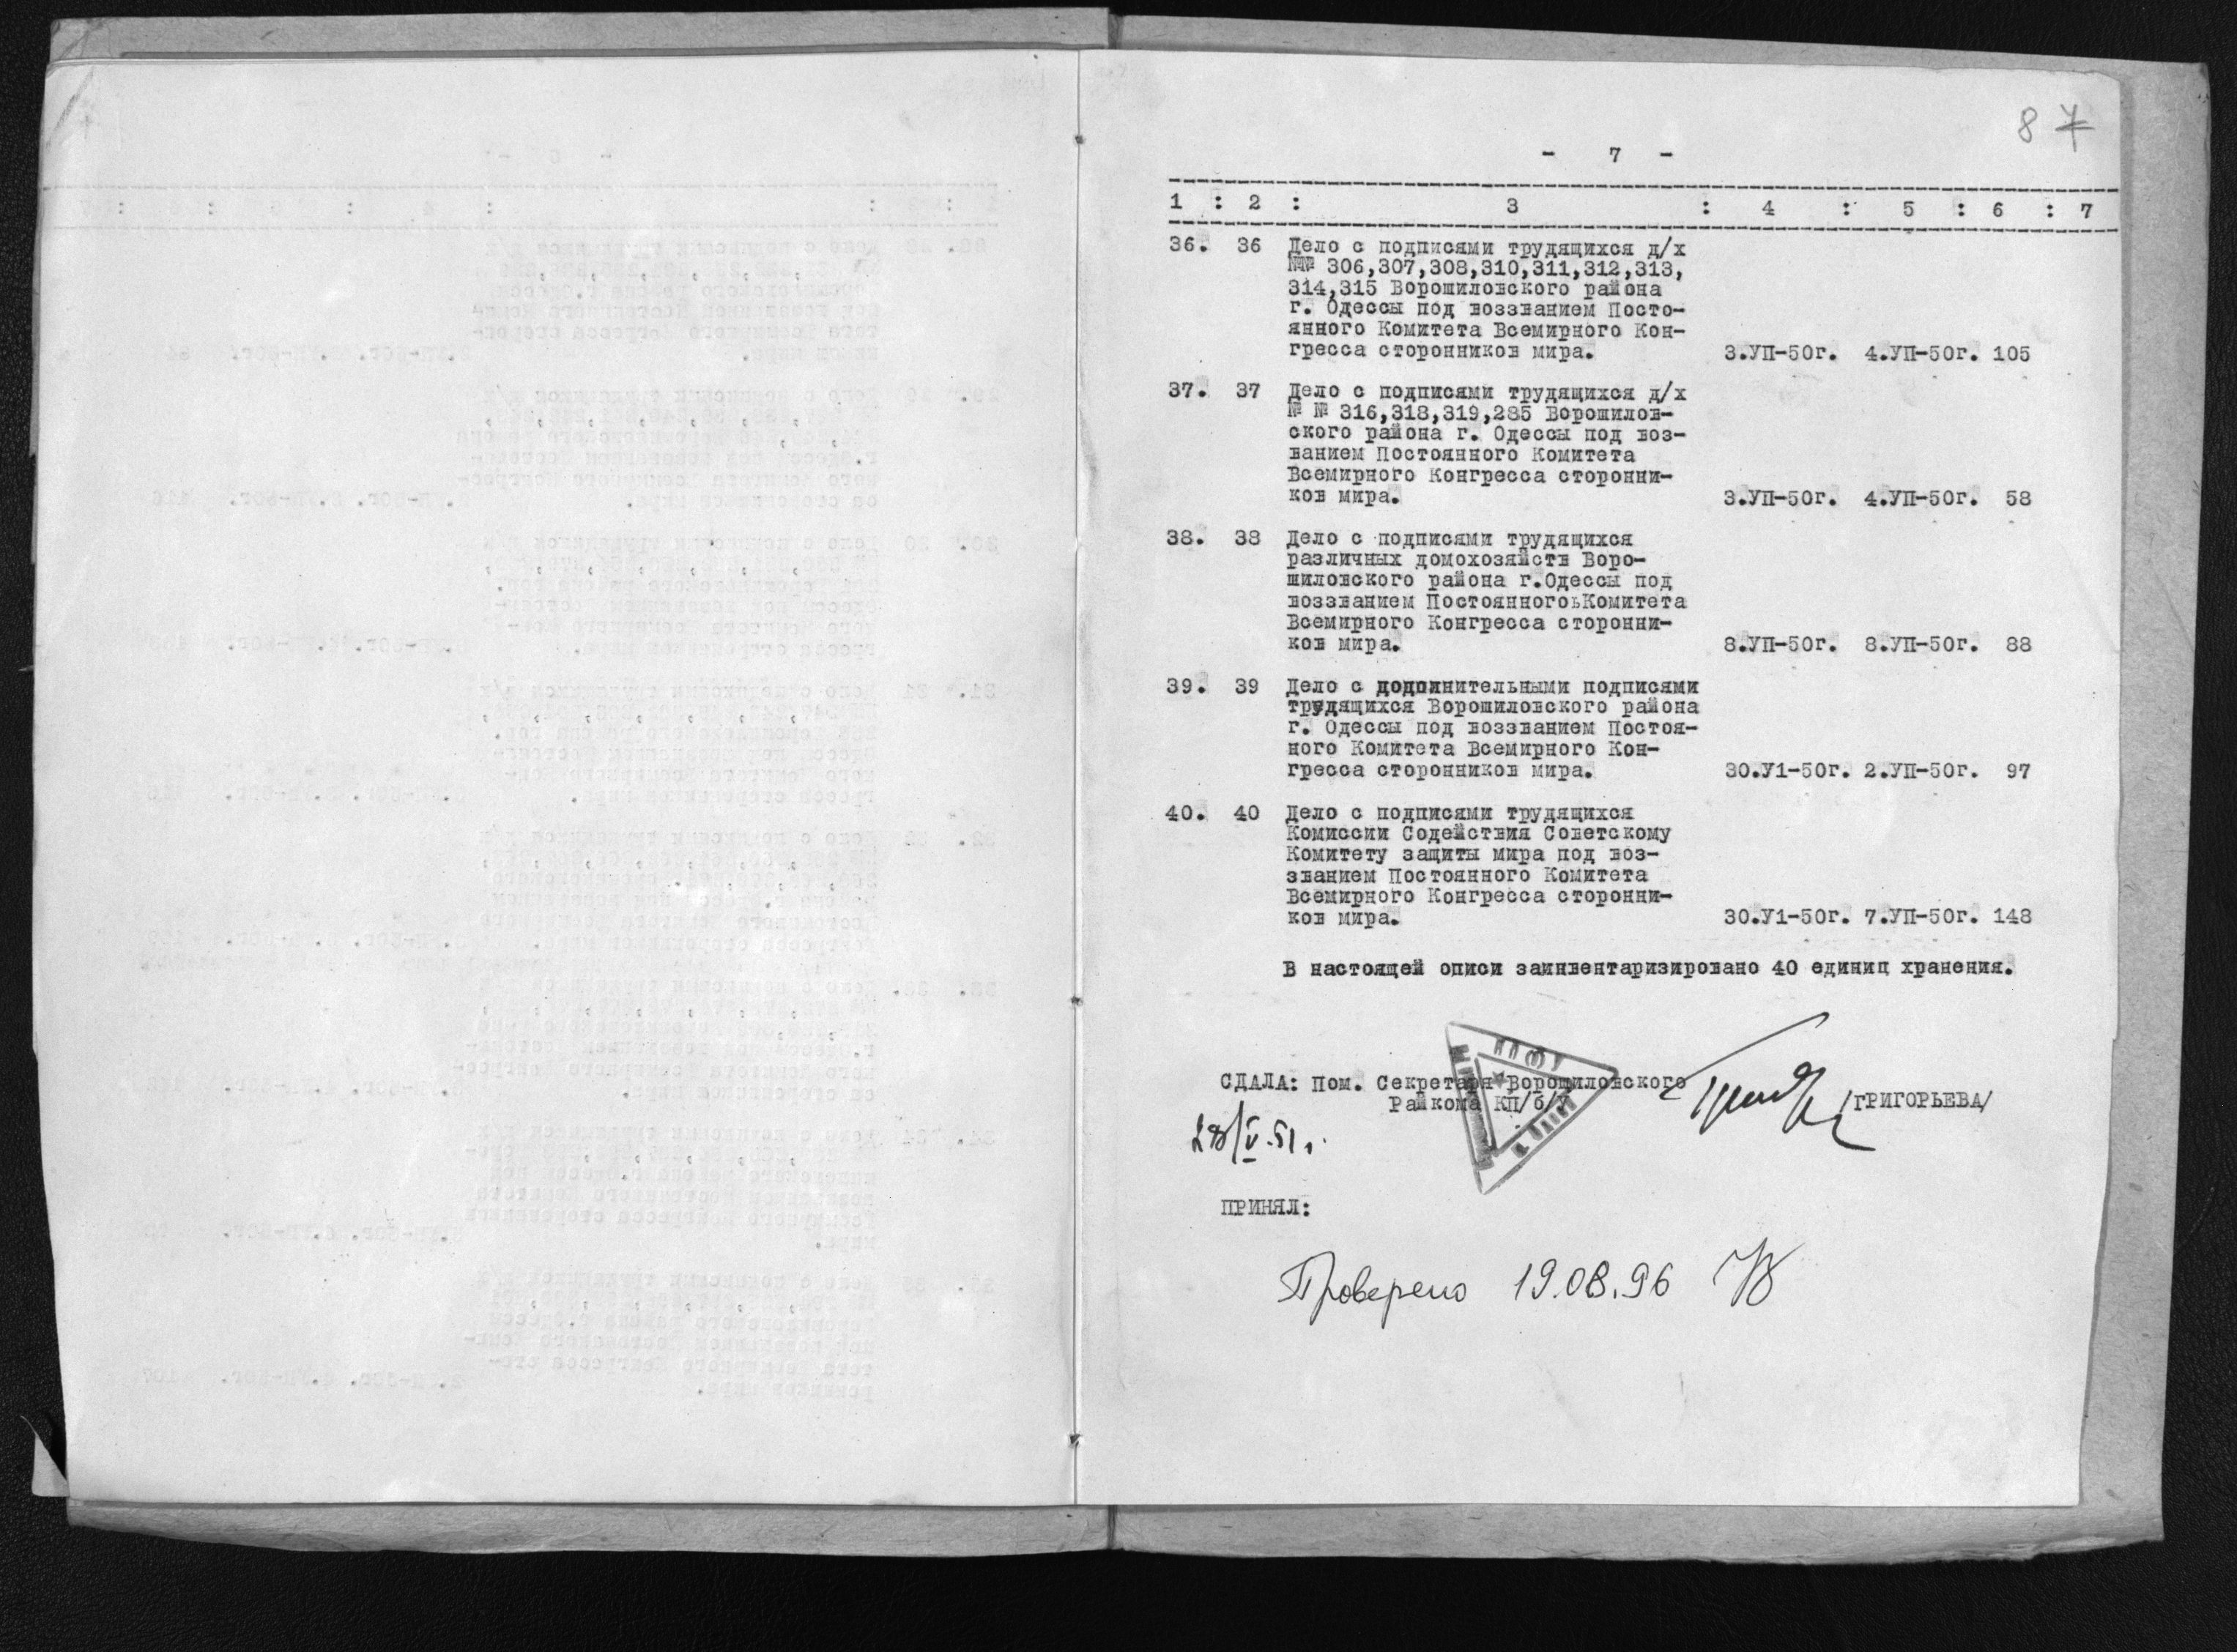 8 7
- 7 -
1 : 2 : 3 : 4 : 5 : 6 : 7
36. 36 Дело с подписями трудящихся д/х
№№ 306,307,308,310,311,312,313,
314,315 Ворошиловского района
г. Одессы под воззванием Посто-
янного Комитета Всемирного Кон-
гресса сторонников мира. 3.УП-50г. 4.УП-50г. 105
37. 37 Дело с подписями трудящихся д/х
№ № 316,318,319,285 Ворошилов-
ского района г. Одессы под воз-
ванием Постоянного Комитета
Всемирного Конгресса сторонни-
ков мира. 3.УП-50г. 4.УП-50г. 58
38. 38 Дело с подписями трудящихся
различных домохозяйств Воро-
шиловского района г.Одессы под
воззванием ПостоянногоьКомитета
Всемирного Конгресса сторонни-
ков мира. 8.УП-50г. 8.УП-50г. 88
39. 39 Дело с дополнительными подписями
трудящихся Ворошиловского района
г. Одессы под воззванием Постоя-
ного Комитета Всемирного Кон-
гресса сторонников мира. 30.У1-50г. 2.УП-50г. 97
40. 40 Дело с подписями трудящихся
Комиссии Содействия Советскому
Комитету защиты мира под воз-
званием Постоянного Комитета
Всемирного Конгресса сторонни-
ков мира. 30.У1-50г. 7.УП-50г. 148
В настоящей описи заинвентаризировано 40 единиц хранения.
СДАЛА: Пом. Секретаря Ворошиловского
Райкома КП/б/У /ГРИГОРЬЕВА/
28/V.51г.
ПРИНЯЛ:
Проверено 19.08.96